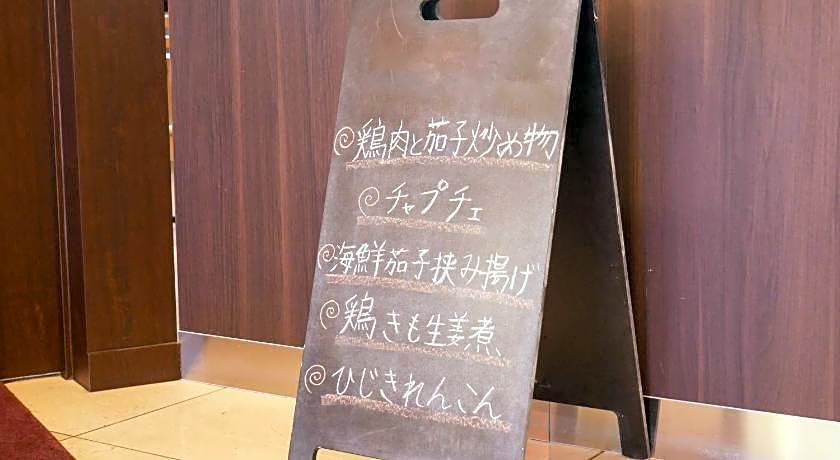 鶏肉と茄子炒め物
チャプチェ
海鮮茄子挟み揚げ
鶏きも生姜煮
ひじきれんこん